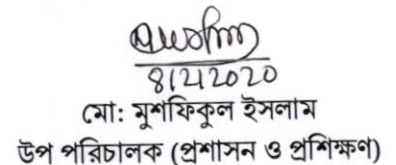 8/2/2020
মো: মুশফিকুল ইসলাম
উপ পরিচালক (প্রশাসন ও প্রশিক্ষণ)